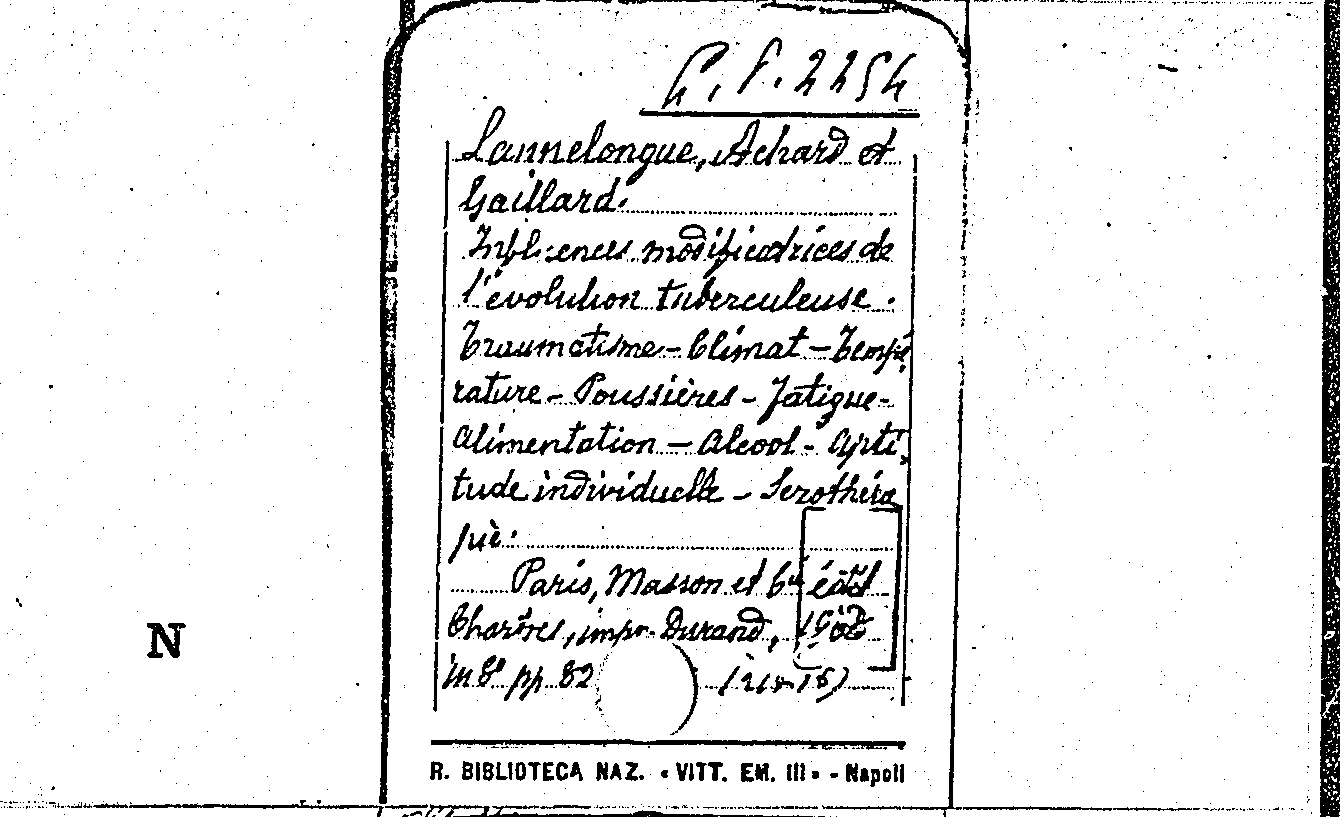 2254
Lannelongue, Achard et
Gaillard.
Influences modificatrices de
l'évolution tuberculeuse.
Traumatisme - Climat - Tempé,
rature - Poussières - Fatigue -
Alimentation - Alcool - Apti,
tude individuelle - Serothéra
pie.
Paris, Masson et C.ie édit
Chartres, impr. Durand,
in 8° pp. 82
N
R. BIBLIOTECA NAZ. « VITT. EM. III » - Napoli